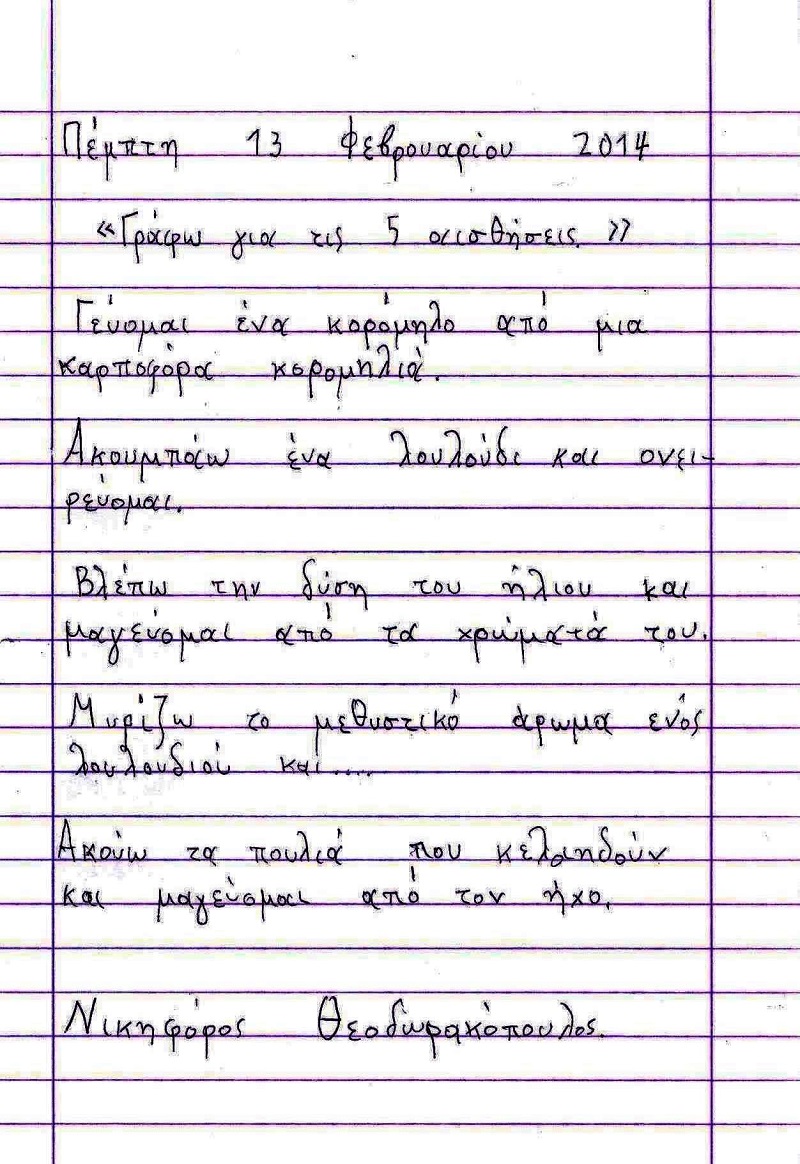 Πέμπτη 13 Φεβρουαρίου 2014
«Γράφω για τις 5 αισθήσεις.»
Γεύομαι ένα κορόμηλο από μια
καρποφόρα κορομηλιά.
Ακουμπάω ένα λουλούδι και ονει-
ρεύομαι.
Βλέπω την δύση του ήλιου και
μαγεύομαι από τα χρώματά του.
Μυρίζω το μεθυστικό άρωμα ενός
λουλουδιού και....
Ακούω τα πουλιά που κελαηδούν
και μαγεύομαι από τον ήχο.
Νικηφόρος Θεοδωρακόπουλος.